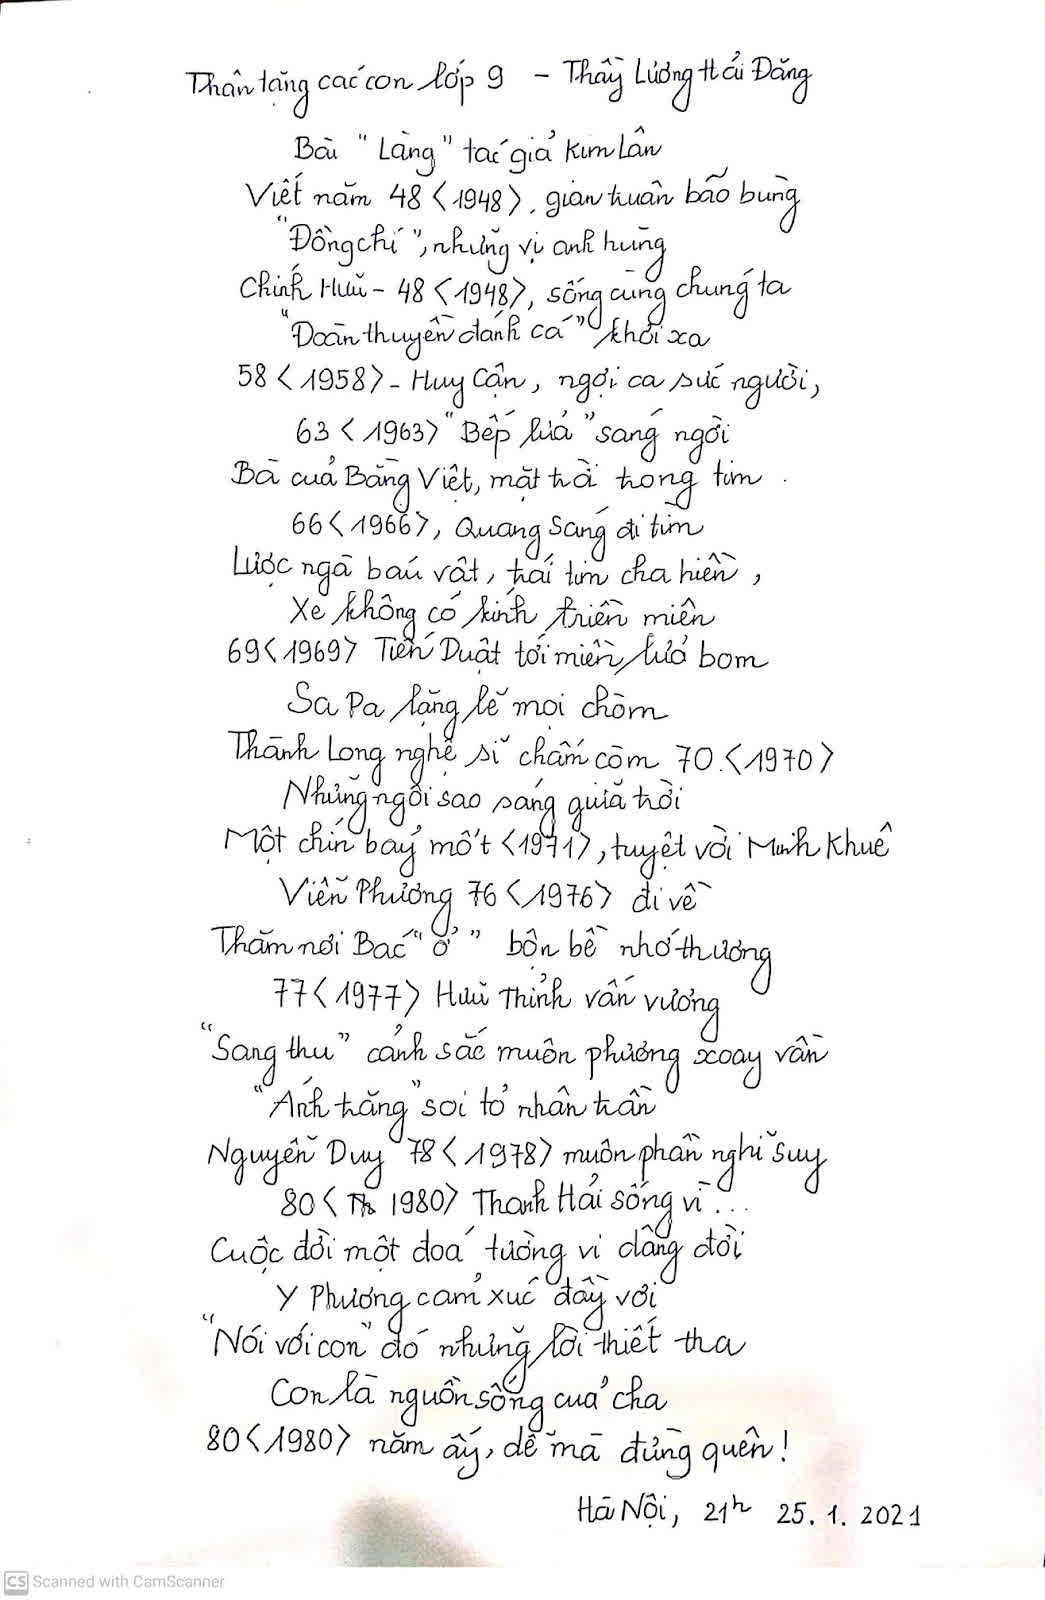 Thân tặng các con lớp 9 - Thầy Lương Hải Đăng
Bài "Làng" tác giả Kim Lân
Viết năm 48 <1948>, gian truân bão bùng
"Đồng chí", những vị anh hùng
Chính Hữu - 48 <1948>, sống cùng chúng ta
"Đoàn thuyền đánh cá" khơi xa
58 <1958> - Huy Cận, ngợi ca sức người,
63 <1963> "Bếp lửa" sáng ngời
Bà của Bằng Việt, mặt trời trong tim.
66 <1966>, Quang Sáng đi tìm
Lược ngà báu vật, trái tim cha hiền,
Xe không có kính triền miên
69 <1969> Tiến Duật tới miền lửa bom
Sa Pa lặng lẽ mọi chòm
Thành Long nghệ sĩ chấm còm 70.<1970>
Những ngôi sao sáng giữa trời
Một chín bảy mốt <1971>, tuyệt vời Minh Khuê
Viễn Phương 76 <1976> đi về
Thăm nơi Bác "ở" bộn bề nhớ thương
77 <1977> Hữu Thỉnh vấn vương
"Sang thu" cảnh sắc muôn phương xoay vần
"Ánh trăng" soi tỏ nhân trần
Nguyễn Duy 78 <1978> muôn phần nghĩ suy
80 <Th 1980> Thanh Hải sống vì...
Cuộc đời một đoá tường vi dâng đời
Y Phương cảm xúc đầy vơi
"Nói với con" đó những lời thiết tha
Con là nguồn sống của cha
80 <1980> năm ấy, dễ mà đừng quên!
Hà Nội, 21h 25.1.2021
CS Scanned with CamScanner